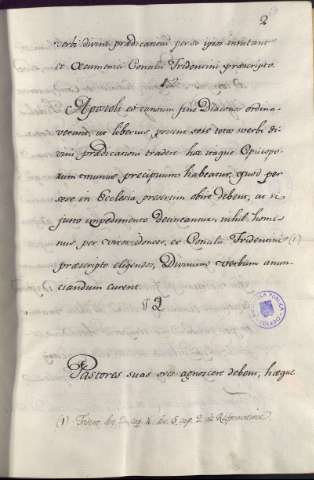 2
verbi divini prædicationi per se ipsos insistant
ex Œcumenici Concilii Tridentini præscripto.
Apostoli ea tantum fine Diaconos ordina-
verunt, ut liberius possent sese totos verbi di-
vini prædicationi tradere hoc itaque Episcopo-
rum munus præcipuum habeatur, quod per
sese in Ecclesia præsertim obire debent, ac si
justo impedimento detineantur, nihil homi-
nus per viros idoneos, ex Concilii Tridentini (1)
præscripto eligendos, Divinum verbum annun-
ciandum curent.
§ 2
Pastores suas oves agnoscere debent, hæque
(1) Trident. ses. 5. cap. 2. de Reformatione